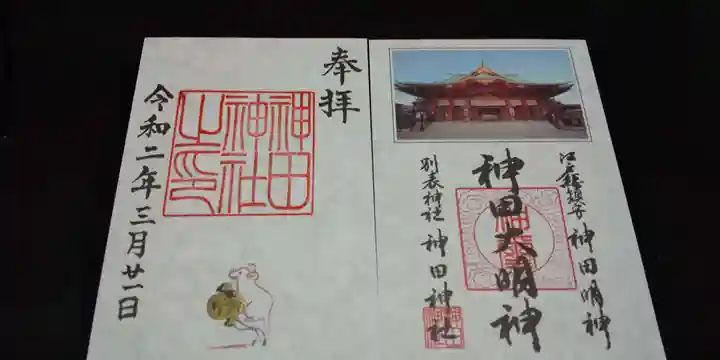 奉拝
神田
神社
之印
令和二年三月廿一日
江戸総鎮守 神田明神
神田大明神
別表神社 神田神社